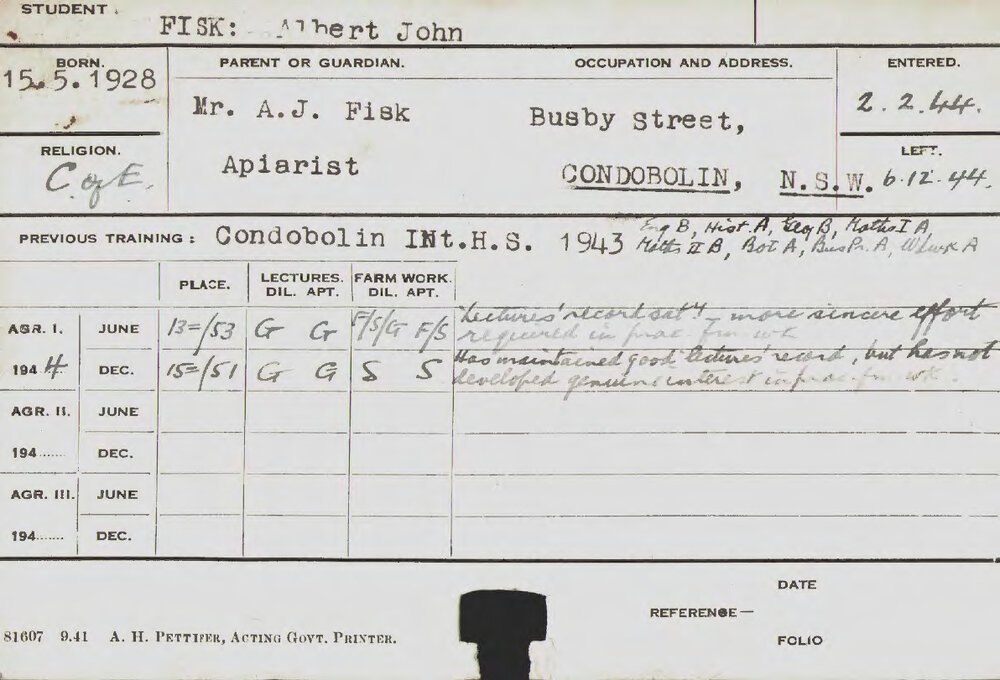 STUDENT.
FISK: Albert John
BORN. PARENT OR GUARDIAN. OCCUPATION AND ADDRESS. ENTERED.
15.5.1928 Mr. A.J. Fisk Busby Street, 2.2.44.
RELIGION. Apiarist CONDOBOLIN, N.S.W. LEFT.
C of E. 6.12.44.
PREVIOUS TRAINING: Condobolin INt.H.S. 1943 Eng B, Hist A, Geog B, Maths I A,
Maths II B, Bot A, Bus Pr. A, Wdwk A
PLACE. LECTURES. FARM WORK.
DIL. APT. DIL. APT.
AGR. I. JUNE 13=/53 G G F/S/G F/S "Lectures" record sat'y – more sincere effort
required in prac. fm wk
1944 DEC. 15=/51 G G S S Has maintained good "lectures" record, but has not
developed genuine interest in prac. fm wk.
AGR. II. JUNE
194....... DEC.
AGR. III. JUNE
194....... DEC.
DATE
REFERENCE—
FOLIO
81607 9.41 A. H. PETTIFER, ACTING GOVT. PRINTER.